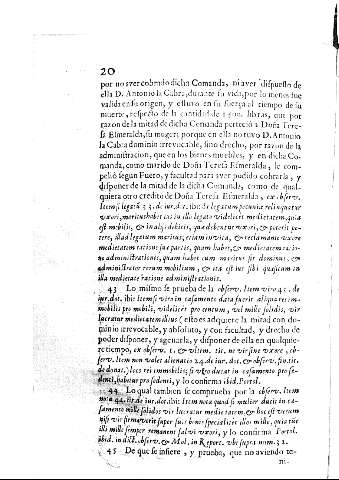 20
por no aver cobrado dicha Comanda, ni aver dispuesto de
ella D. Antonio la Cabra, durante su vida, por lo menos fue
valida en su origen, y estuvo en su fuerça al tiempo de su
muerte, respecto de la cantidad de libras, que por
razon de la mitad de dicha Comanda pertecio a Doña Tere-
sa Esmeralda, su muger; porque en ella no tuvo D. Antonio
la Cabra dominio irrevocable, sino drecho, por razon de la
administracion, que en los bienes muebles, y en dicha Co-
manda, como marido de Doña Teresa Esmeralda, le com-
pelio segun Fuero, y facultad para aver podido cobrarla, y
disponer de la mitad de la dicha Comanda, como de qual-
quiera otro credito de Doña Teresa Esmeralda, ex observ.
Item si legatū 33. de iur. dot. ibi: de legatum pecunia relinquatur
uxori, maritus habet ius in illo legato videlicet medietatem, quia
est mobilis, & in abitis debitis, quæ debentur uxori, & poterit pe-
tere, illud legatum maritus, etiam invita, & reclamante uxore
medietatem ratione suæ partis, quam habet, & medietatem ratio-
ne administrationis, quam habet cum maritus sit dominus, &
administrator rerum mobilium, & ita est ius sibi quæsitum in
illa medietate ratione administrationis.
43 Lo mismo se prueba de la observ. Item vero 42. de
iur. dot. ibi: Item si vir in casamento data fuerit aliqua res im-
mobilis pro mobili, videlicet pro centum, vel mille solidis, vir
lucratur medietatem illius (esto es adquiere la mitad con do-
minio irrevocable, y absoluto, y con facultad, y drecho de
poder disponer, y agenarla, y disponer de ella en qualquie-
re tiempo, ex observ. 1. & ultim. tit. ne vir sine uxore, ob-
serv. Item non valet alienatio 24. de iur. dot. & observ. fin. tit.
de donat.) loco rei immobilis; si verò ducat in casamento pro se-
denci, habetur pro sedenti, y lo confirma ibid. Portol.
44 Lo qual tambien se comprueba por la observ. Item
nota 44. tit. de iur. dot. ibi: Item nota quod si mulier ducit in ca-
samento mille solidos vir lucratur medietatem, & hoc est verum
nisi vir firmaverit super suis bonis specialiter illos mille, quia tūc
illi mille semper remanent salvi uxori, y lo confirma Portol.
ibid. in dict. observ. & Mol. in Repert. ubi supra num. 32.
45 De que se infiere, y prueba, que no aviendo te-
ni-